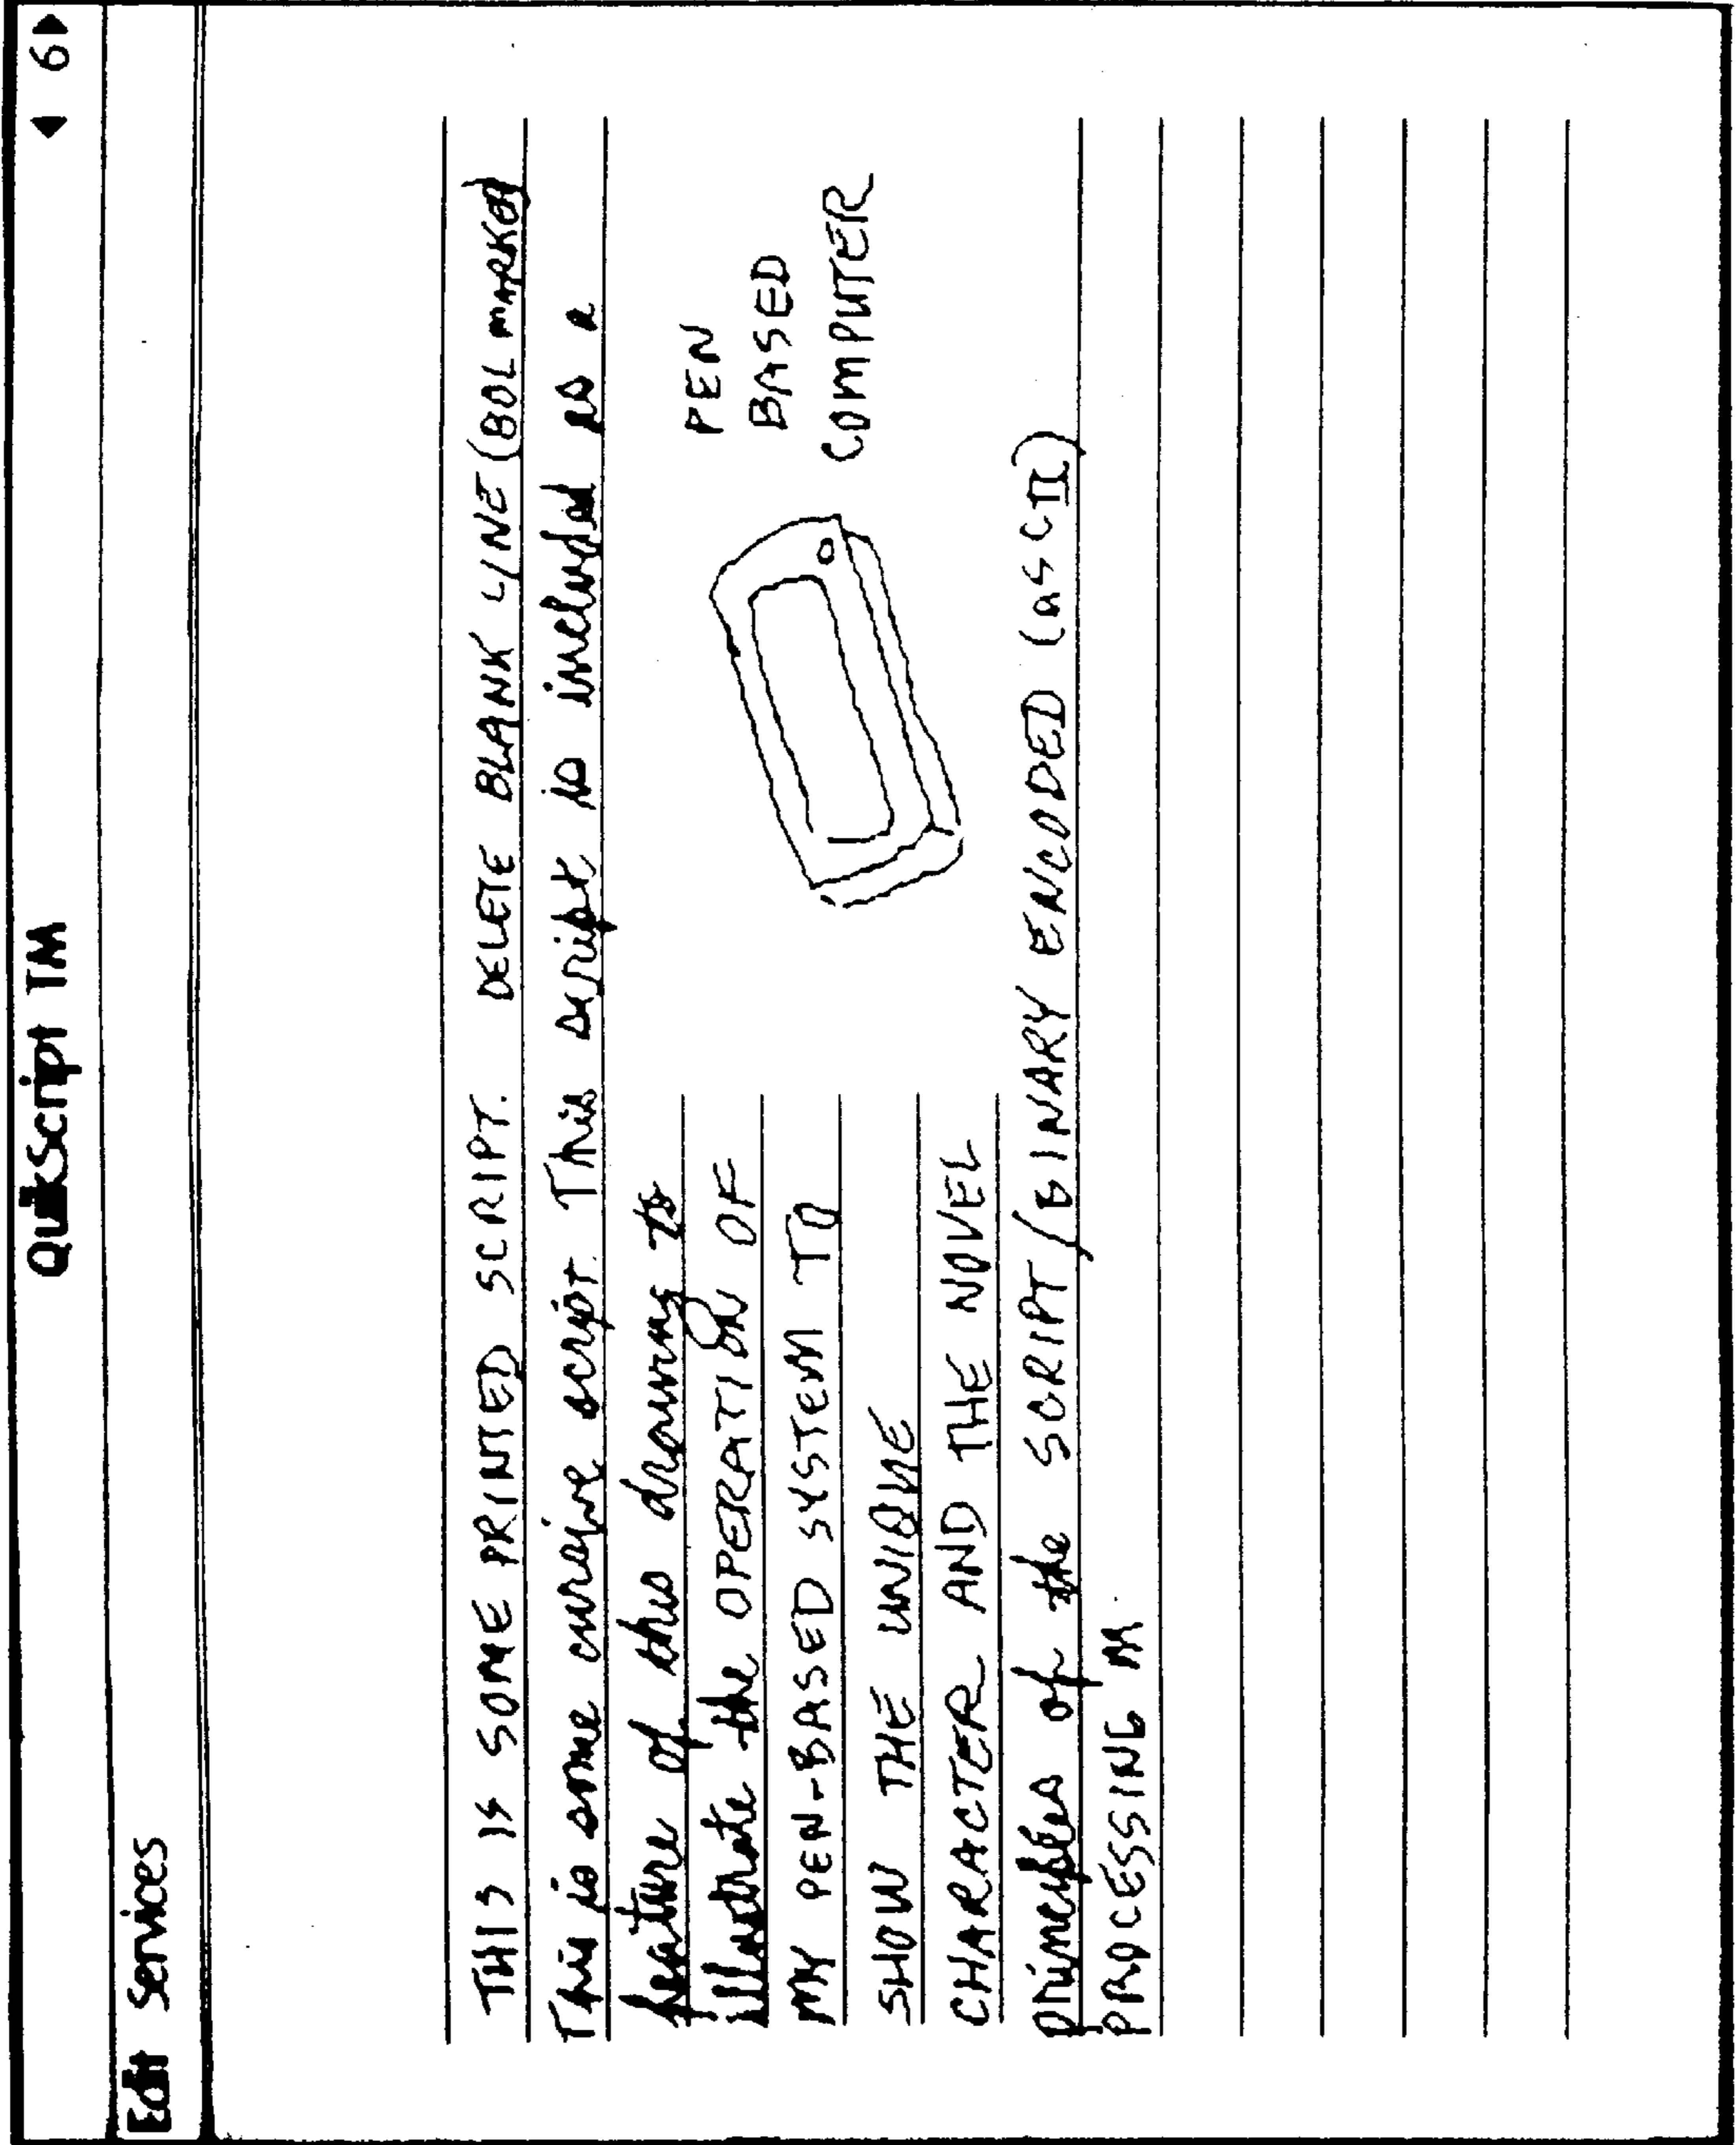 QuikScript TM
◀ 6▶
Edit Services
THIS IS SOME PRINTED SCRIPT. DELETE BLANK LINE (BOL MARKED)
This is some cursive script. This script is included as a
feature of this drawing to
illustrate the OPERATION OF
MY PEN-BASED SYSTEM TO
SHOW THE UNIQUE
CHARACTER AND THE NOVEL
PEN
BASED
COMPUTER
principles of the SCRIPT/BINARY ENCODED (ascII)
PROCESSING M